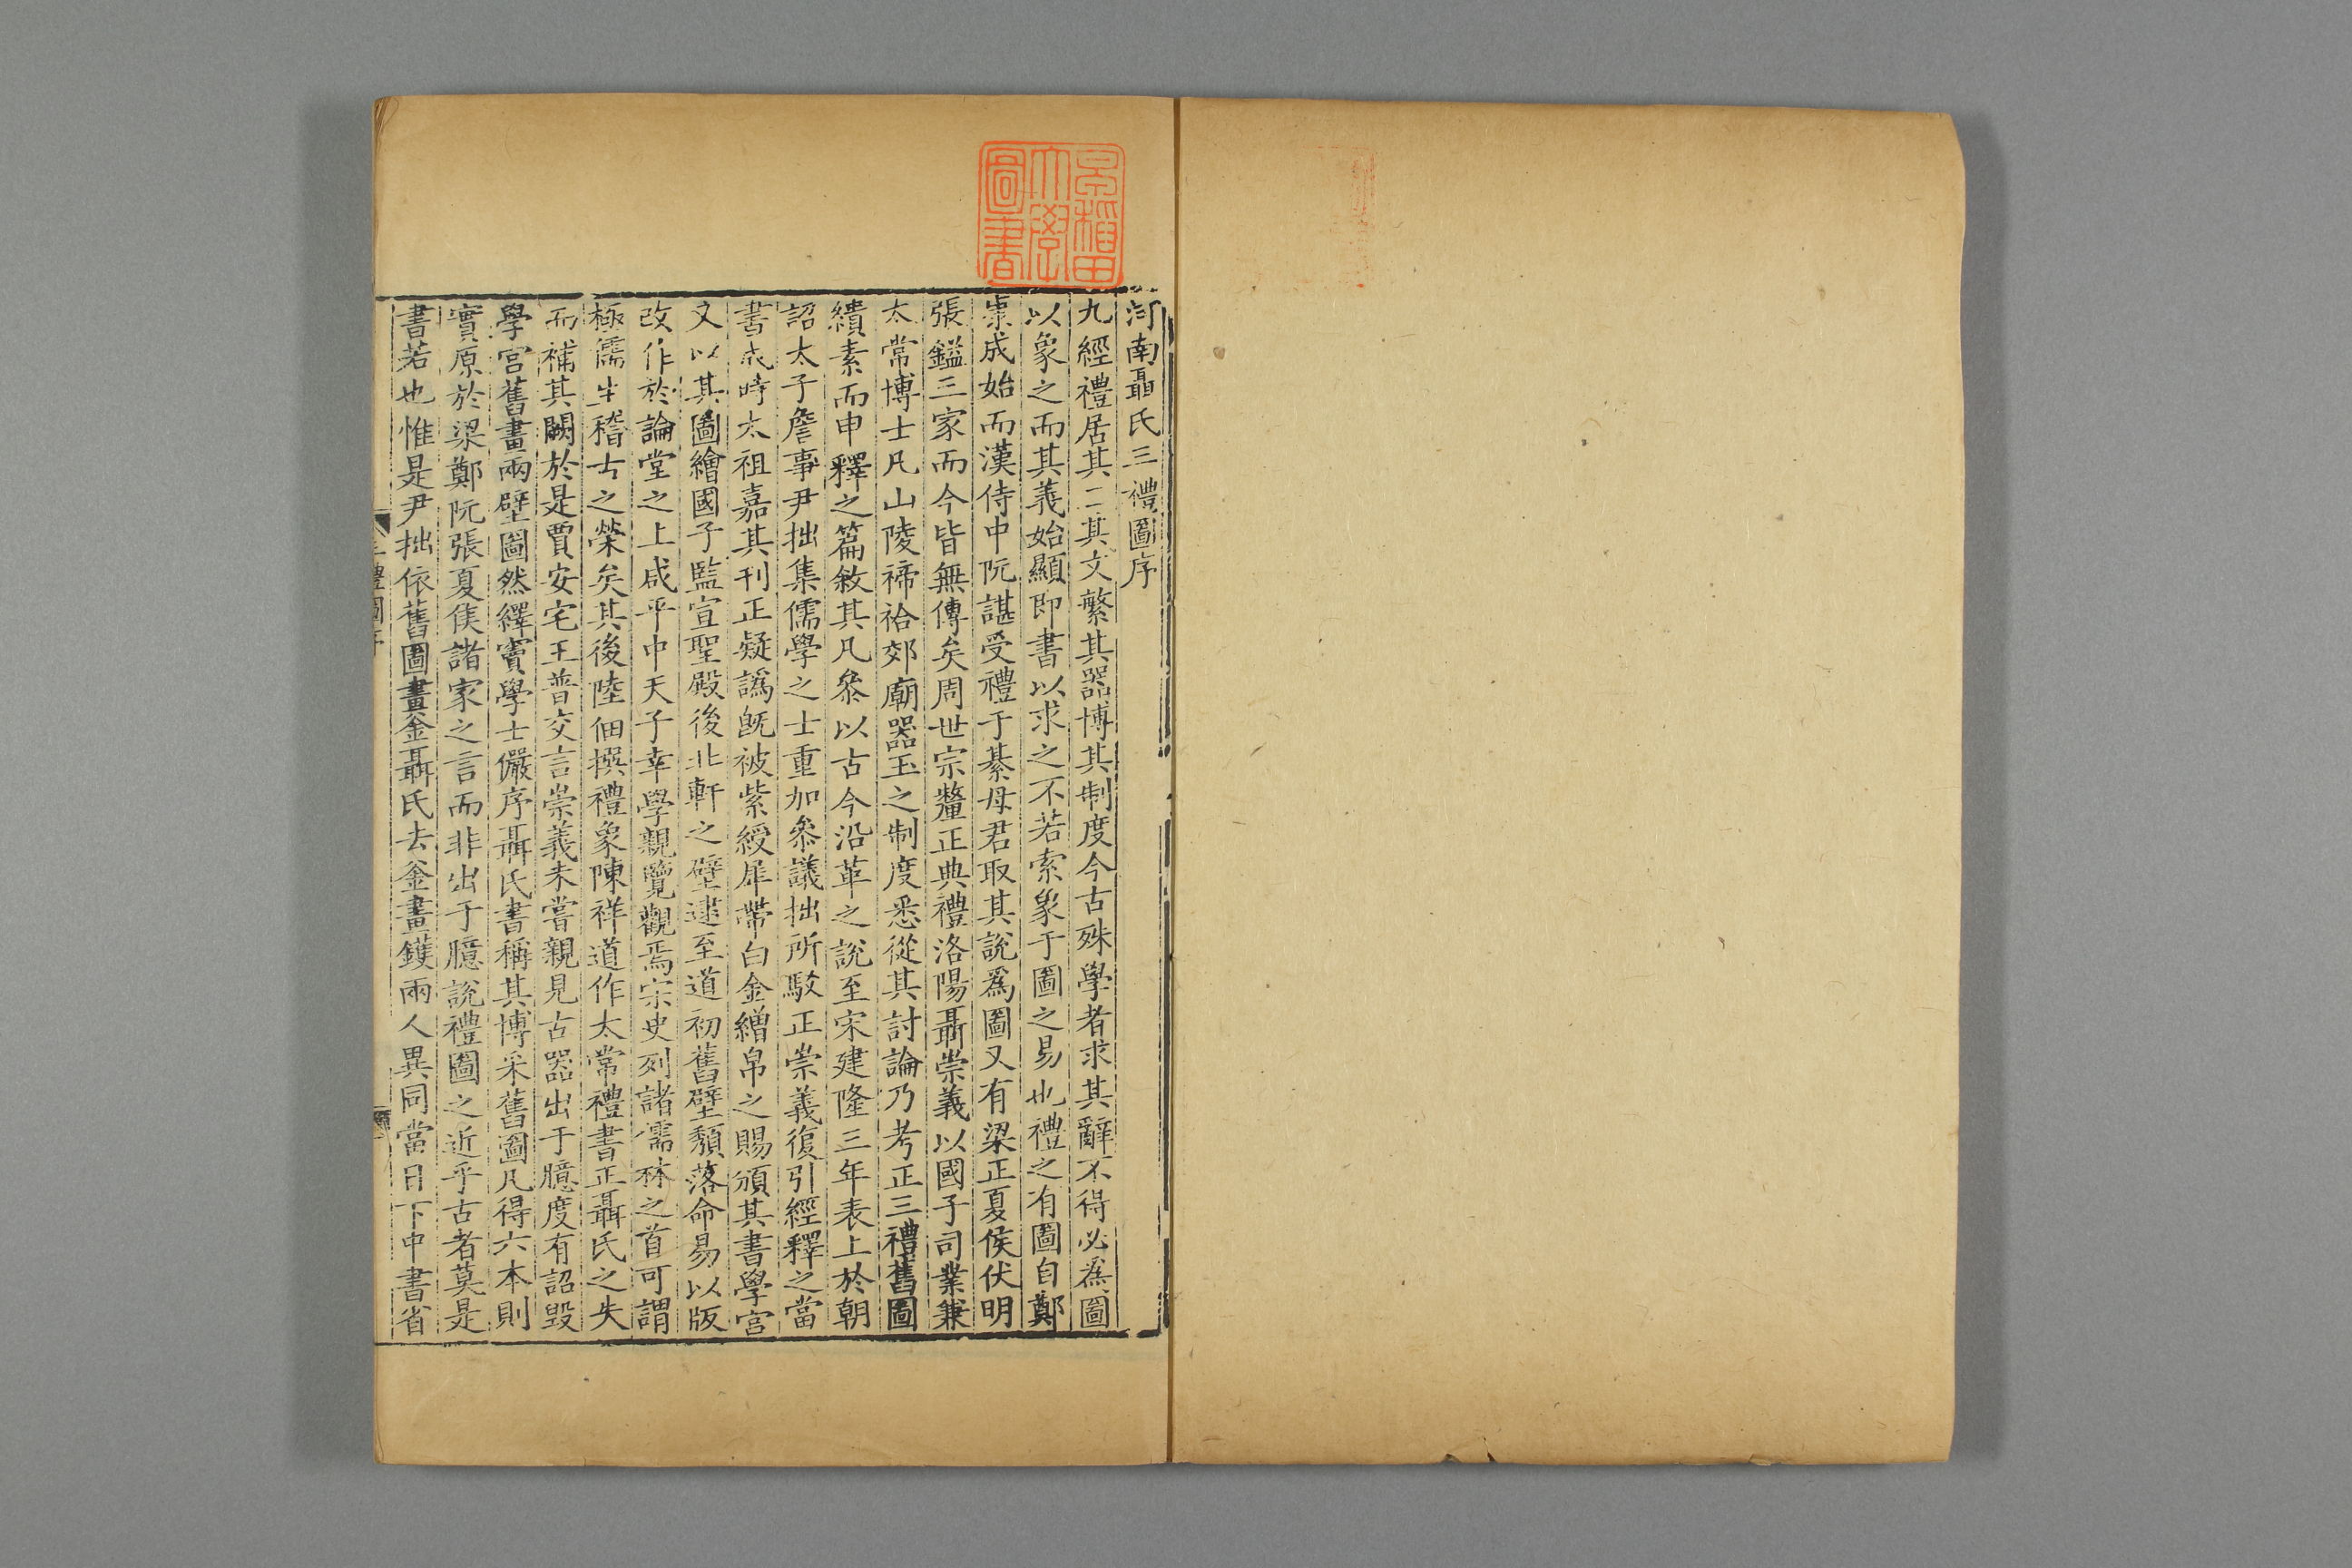 早稲田
大學
圖書
河南聶氏三禮圖序
九經禮居其二其文繁其器博其制度今古殊學者求其辭不得必為圖
以象之而其義始顯即書以求之不若索象于圖之易也禮之有圖自鄭
康成始而漢侍中阮諶受禮于綦母君取其說為圖又有梁正夏侯伏明
張鎰三家而今皆無傳矣周世宗釐正典禮洛陽聶崇義以國子司業兼
太常博士凡山陵禘祫郊廟器玉之制度悉從其討論乃考正三禮舊圖
繢素而申釋之篇敘其凡叅以古今沿革之說至宋建隆三年表上於朝
詔太子詹事尹拙集儒學之士重加叅議拙所駁正崇義復引經釋之當
書成時太祖嘉其刊正疑譌旣被紫綬犀帶白金繒帛之賜頒其書學宮
又以其圖繪國子監宣聖殿後北軒之壁逮至道初舊壁頹落命易以版
改作於論堂之上咸平中天子幸學親覽觀焉宋史列諸儒林之首可謂
極儒生稽古之榮矣其後陸佃撰禮象陳祥道作太常禮書正聶氏之失
而補其闕於是賈安宅王普交言崇義未嘗親見古器出于臆度有詔毀
學宮舊畫兩壁圖然繹竇學士儼序聶氏書稱其博采舊圖凡得六本則
實原於梁鄭阮張夏侯諸家之言而非出于臆說禮圖之近乎古者莫是
書若也惟是尹拙依舊圖畫釜聶氏去釜畫鑊兩人異同當日下中書省
三禮圖序